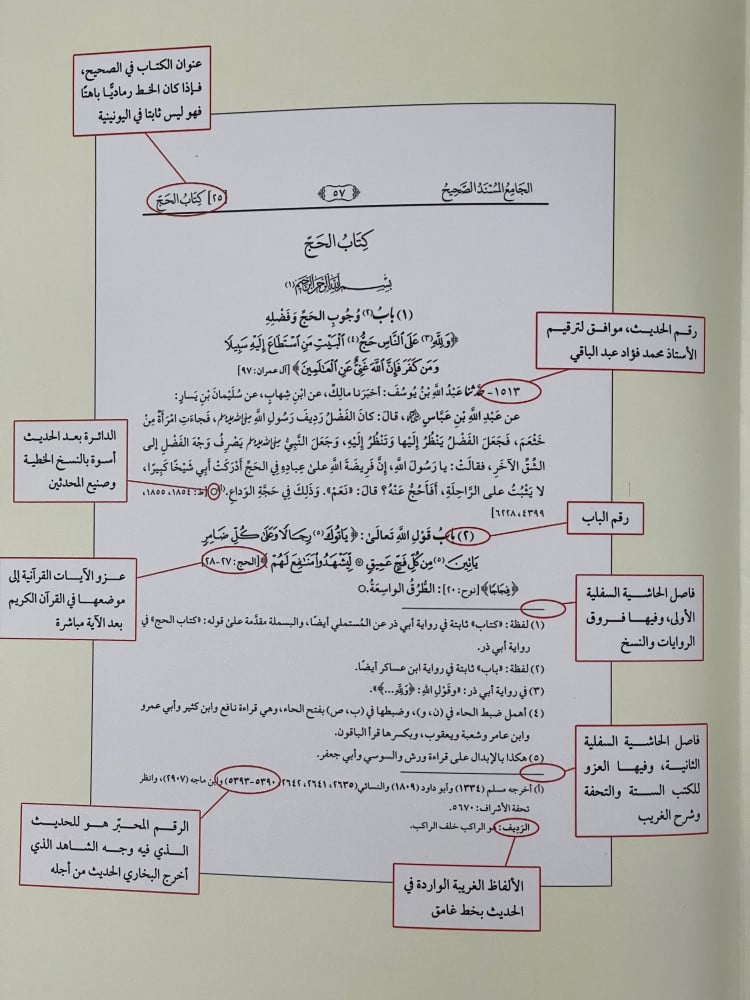 عنوان الكتاب في الصحيح،
فإذا كان الخط رماديًّا باهتًا
فهو ليس ثابتا في اليونينية
الجامع المُسْنَدُ الصَّحِيحُ
٥٧
[٢٥] كِتَابُ الحَجّ
كِتَابُ الحَجّ
بِسْمِ اللَّهِ الرَّحْمَنِ الرَّحِيمِ (١)
(١) بابُ (٢) وُجُوبِ الحَجِّ وَفَضْلِهِ
﴿وَلِلَّهِ (٣) عَلَى النَّاسِ حَجُّ (٤) الْبَيْتِ مَنِ اسْتَطَاعَ إِلَيْهِ سَبِيلًا
وَمَن كَفَرَ فَإِنَّ اللَّهَ غَنِيٌّ عَنِ الْعَالَمِينَ﴾ [آل عمران: ٩٧]
رقم الحديث، موافق لترقيم
الأستاذ محمد فؤاد عبد الباقي
١٥١٣- حدَّثنا عَبْدُ اللَّهِ بْنُ يُوسُفَ: أخبَرَنا مالِكٌ، عن ابْنِ شِهابٍ، عن سُلَيْمانَ بْنِ يَسارٍ:
عن عَبْدِ اللَّهِ بْنِ عَبَّاسٍ ﵄، قالَ: كانَ الفَضْلُ رَدِيفَ رَسُولِ اللَّهِ ﷺ، فَجاءَتِ امْرَأَةٌ مِنْ
خَثْعَمَ، فَجَعَلَ الفَضْلُ يَنْظُرُ إِلَيْها وَتَنْظُرُ إِلَيْهِ، وَجَعَلَ النَّبِيُّ ﷺ يَصْرِفُ وَجْهَ الفَضْلِ إلى
الشِّقِّ الآخَرِ، فقالَتْ: يا رَسُولَ اللَّهِ، إِنَّ فَرِيضَةَ اللَّهِ علىٰ عِبادِهِ في الحَجِّ أَدْرَكَتْ أَبِي شَيْخًا كَبِيرًا،
لا يَثْبُتُ على الرَّاحِلَةِ، أَفَأَحُجُّ عَنْهُ؟ قالَ: «نَعَمْ». وَذَلِكَ في حَجَّةِ الوَداعِ. (أ) ○ [ط: ١٨٥٤، ١٨٥٥،
٤٣٩٩، ٦٢٢٨]
الدائرة بعد الحديث
أسوة بالنسخ الخطية
وصنيع المحدثين
رقم الباب
(٢) بابُ قَوْلِ اللَّهِ تَعالَىٰ: ﴿يَأْتُوكَ (٥) رِجَالًا وَعَلَى كُلِّ ضَامِرٍ
يَأْتِينَ (٥) مِن كُلِّ فَجٍّ عَمِيقٍ ۞ لِّيَشْهَدُوا مَنَافِعَ لَهُمْ﴾ [الحج: ٢٧-٢٨]
﴿فِجَاجًا﴾ [نوح: ٢٠]: الطُّرُقُ الواسِعَةُ. ○
عـزو الآيات القرآنية إلى
موضعها في القرآن الكريم
بعد الآية مباشرة
فاصل الحاشية السفلية
الأولى، وفيها فـروق
الروايات والنسخ
(١) لفظة: «كتاب» ثابتة في رواية أبي ذر عن المُستملي أيضًا، والبسملة مقدَّمة علىٰ قوله: «كتاب الحج» في
رواية أبي ذر.
(٢) لفظة: «باب» ثابتة في رواية ابن عساكر أيضًا.
(٣) في رواية أبي ذر: «وقَوْلِ اللهِ: ﴿وَلِلَّهِ...﴾».
(٤) أهمل ضبط الحاء في (ن، و)، وضبطها في (ب، ص) بفتح الحاء، وهي قراءة نافع وابن كثير وأبي عمرو
وابن عامر وشعبة ويعقوب، وبكسرها قرأ الباقون.
(٥) هكذا بالإبدال على قراءة ورش والسوسي وأبي جعفر.
فاصل الحاشيـة السفلية
الثانيـة، وفيـها العـزو
للكتب الستة والتحفة
وشرح الغريب
(أ) أخرجه مسلم (١٣٣٤) وأبو داود (١٨٠٩) والنسائي (٢٦٣٥، ٢٦٤١، ٢٦٤٢، ٥٣٩٠-٥٣٩٣) وابن ماجه (٢٩٠٧)، وانظر
تحفة الأشراف: ٥٦٧٠.
الرَّدِيف: هو الراكب خلف الراكب.
الرقـم المحبّـر هـو للحديث
الـذي فيه وجـه الشاهد الذي
أخرج البخاري الحديث من أجله
الألفاظ الغريبة الواردة في
الحديث بخط غامق